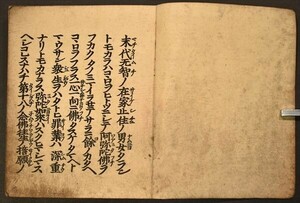 末代无智ノ在家止住ノ男女タラン
トモカラハコヽロヲヒトツニシテ阿弥陀佛ヲ
フカクタノミマイラセサラニ餘ノカタヘ
コヽロヲフラス一心一向ニ佛タスケタマヘト
マウサン衆生ヲハタトヒ罪業ハ深重
ナリトモカナラス弥陀如来ハスクヒマシマス
ヘシコレスナハチ第十八ノ念佛往生ノ誓願ノ